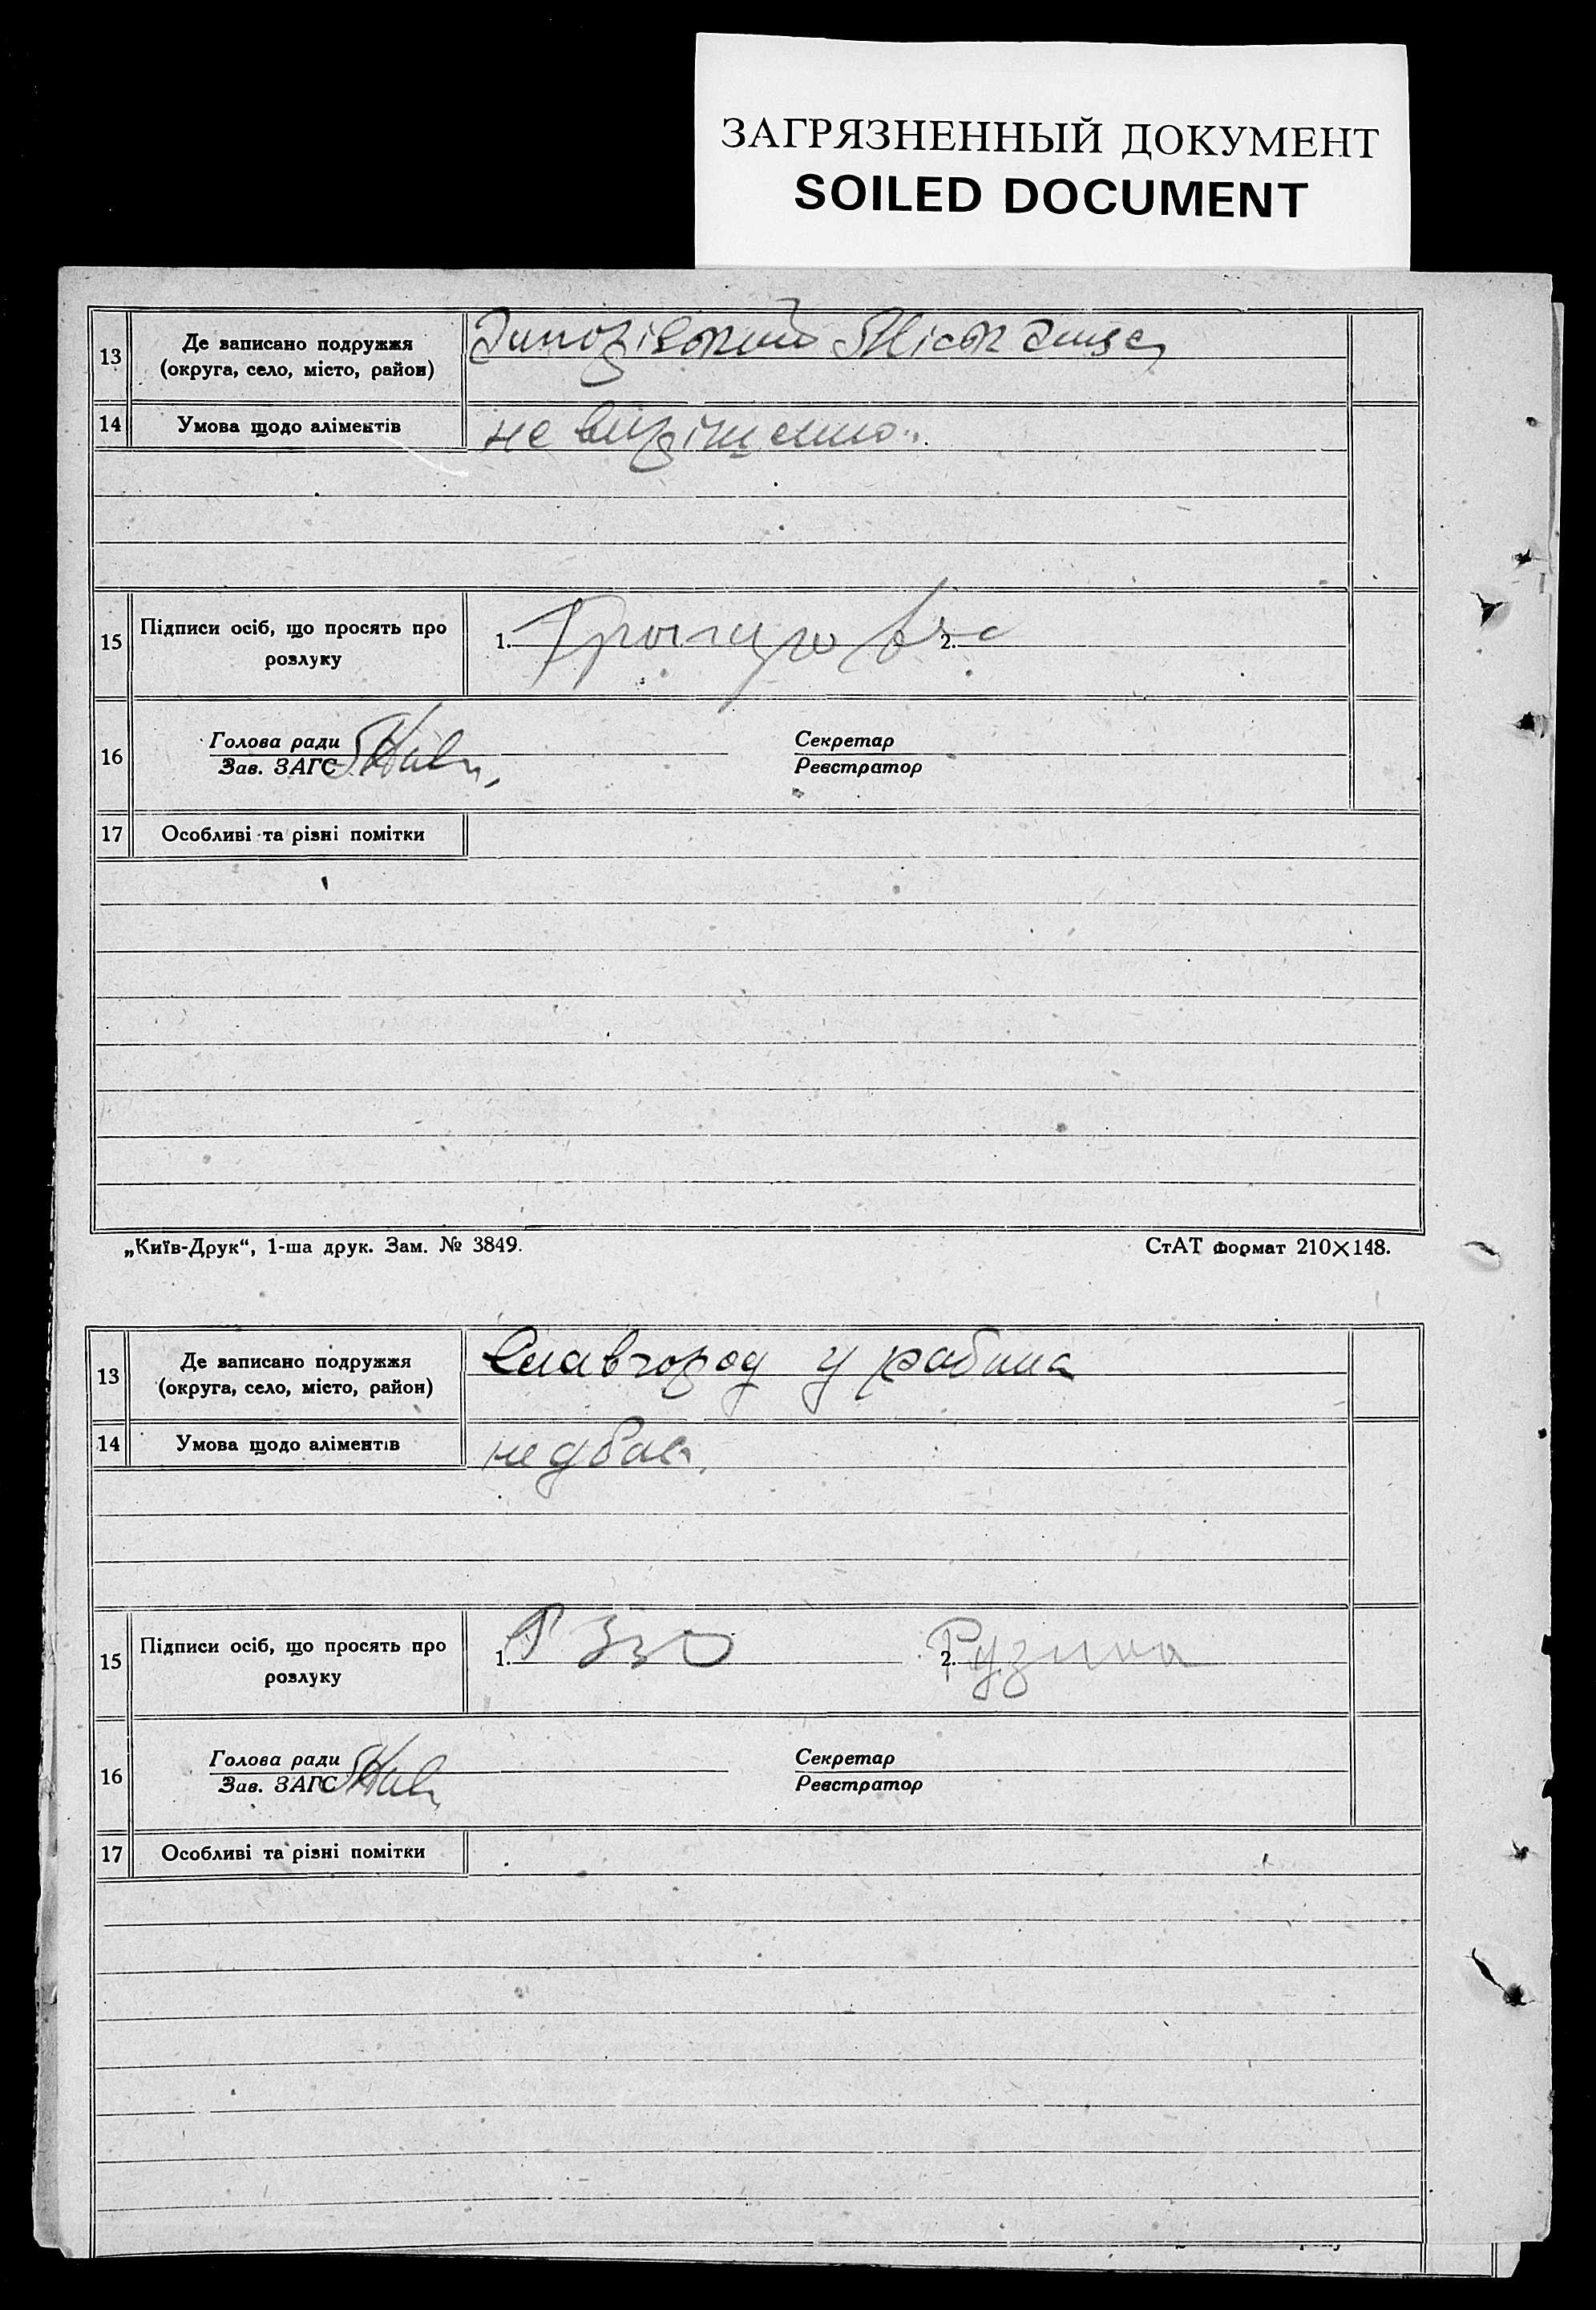 ЗАГРЯЗНЕННЫЙ ДОКУМЕНТ
SOILED DOCUMENT
13
Де записано подружжя
(округа, село, місто, район)
14
Умова щодо аліментів
не вирішенно
15
Підписи осіб, що просять про
розлуку
1.
2.
16
Голова ради
Зав. ЗАГС
Секретар
Реєстратор
17
Особливі та різні помітки
„Київ-Друк“, 1-ша друк. Зам. № 3849.
СтАТ формат 210×148.
13
Де записано подружжя
(округа, село, місто, район)
Славгород у
14
Умова щодо аліментів
15
Підписи осіб, що просять про
розлуку
1.
2. Рузина
16
Голова ради
Зав. ЗАГС
Секретар
Реєстратор
17
Особливі та різні помітки